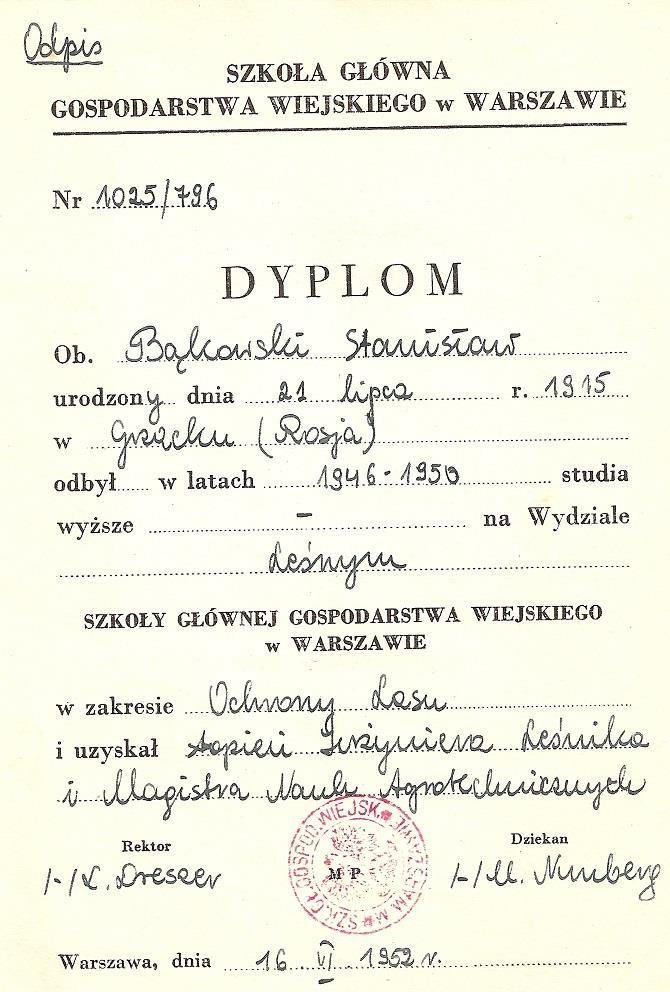 Odpis
SZKOŁA GŁÓWNA
GOSPODARSTWA WIEJSKIEGO w WARSZAWIE
Nr 1025/796
DYPLOM
Ob. Bąkowski Stanisław
urodzony dnia 21 lipca r. 1915
w Grzącku (Rosja)
odbył w latach 1946-1950 studia
wyższe – na Wydziale
Leśnym
SZKOŁY GŁÓWNEJ GOSPODARSTWA WIEJSKIEGO
w WARSZAWIE
w zakresie Ochrony Lasu
i uzyskał stopień Inżyniera Leśnika
i Magistra Nauk Agrotechnicznych
Rektor
Dziekan
/-/ K. Dreszer
/-/ M. Nunberg
M P
SZK. GŁ. GOSPOD. WIEJSK. W WARSZAWIE
Warszawa, dnia 16. VI. 1952 r.